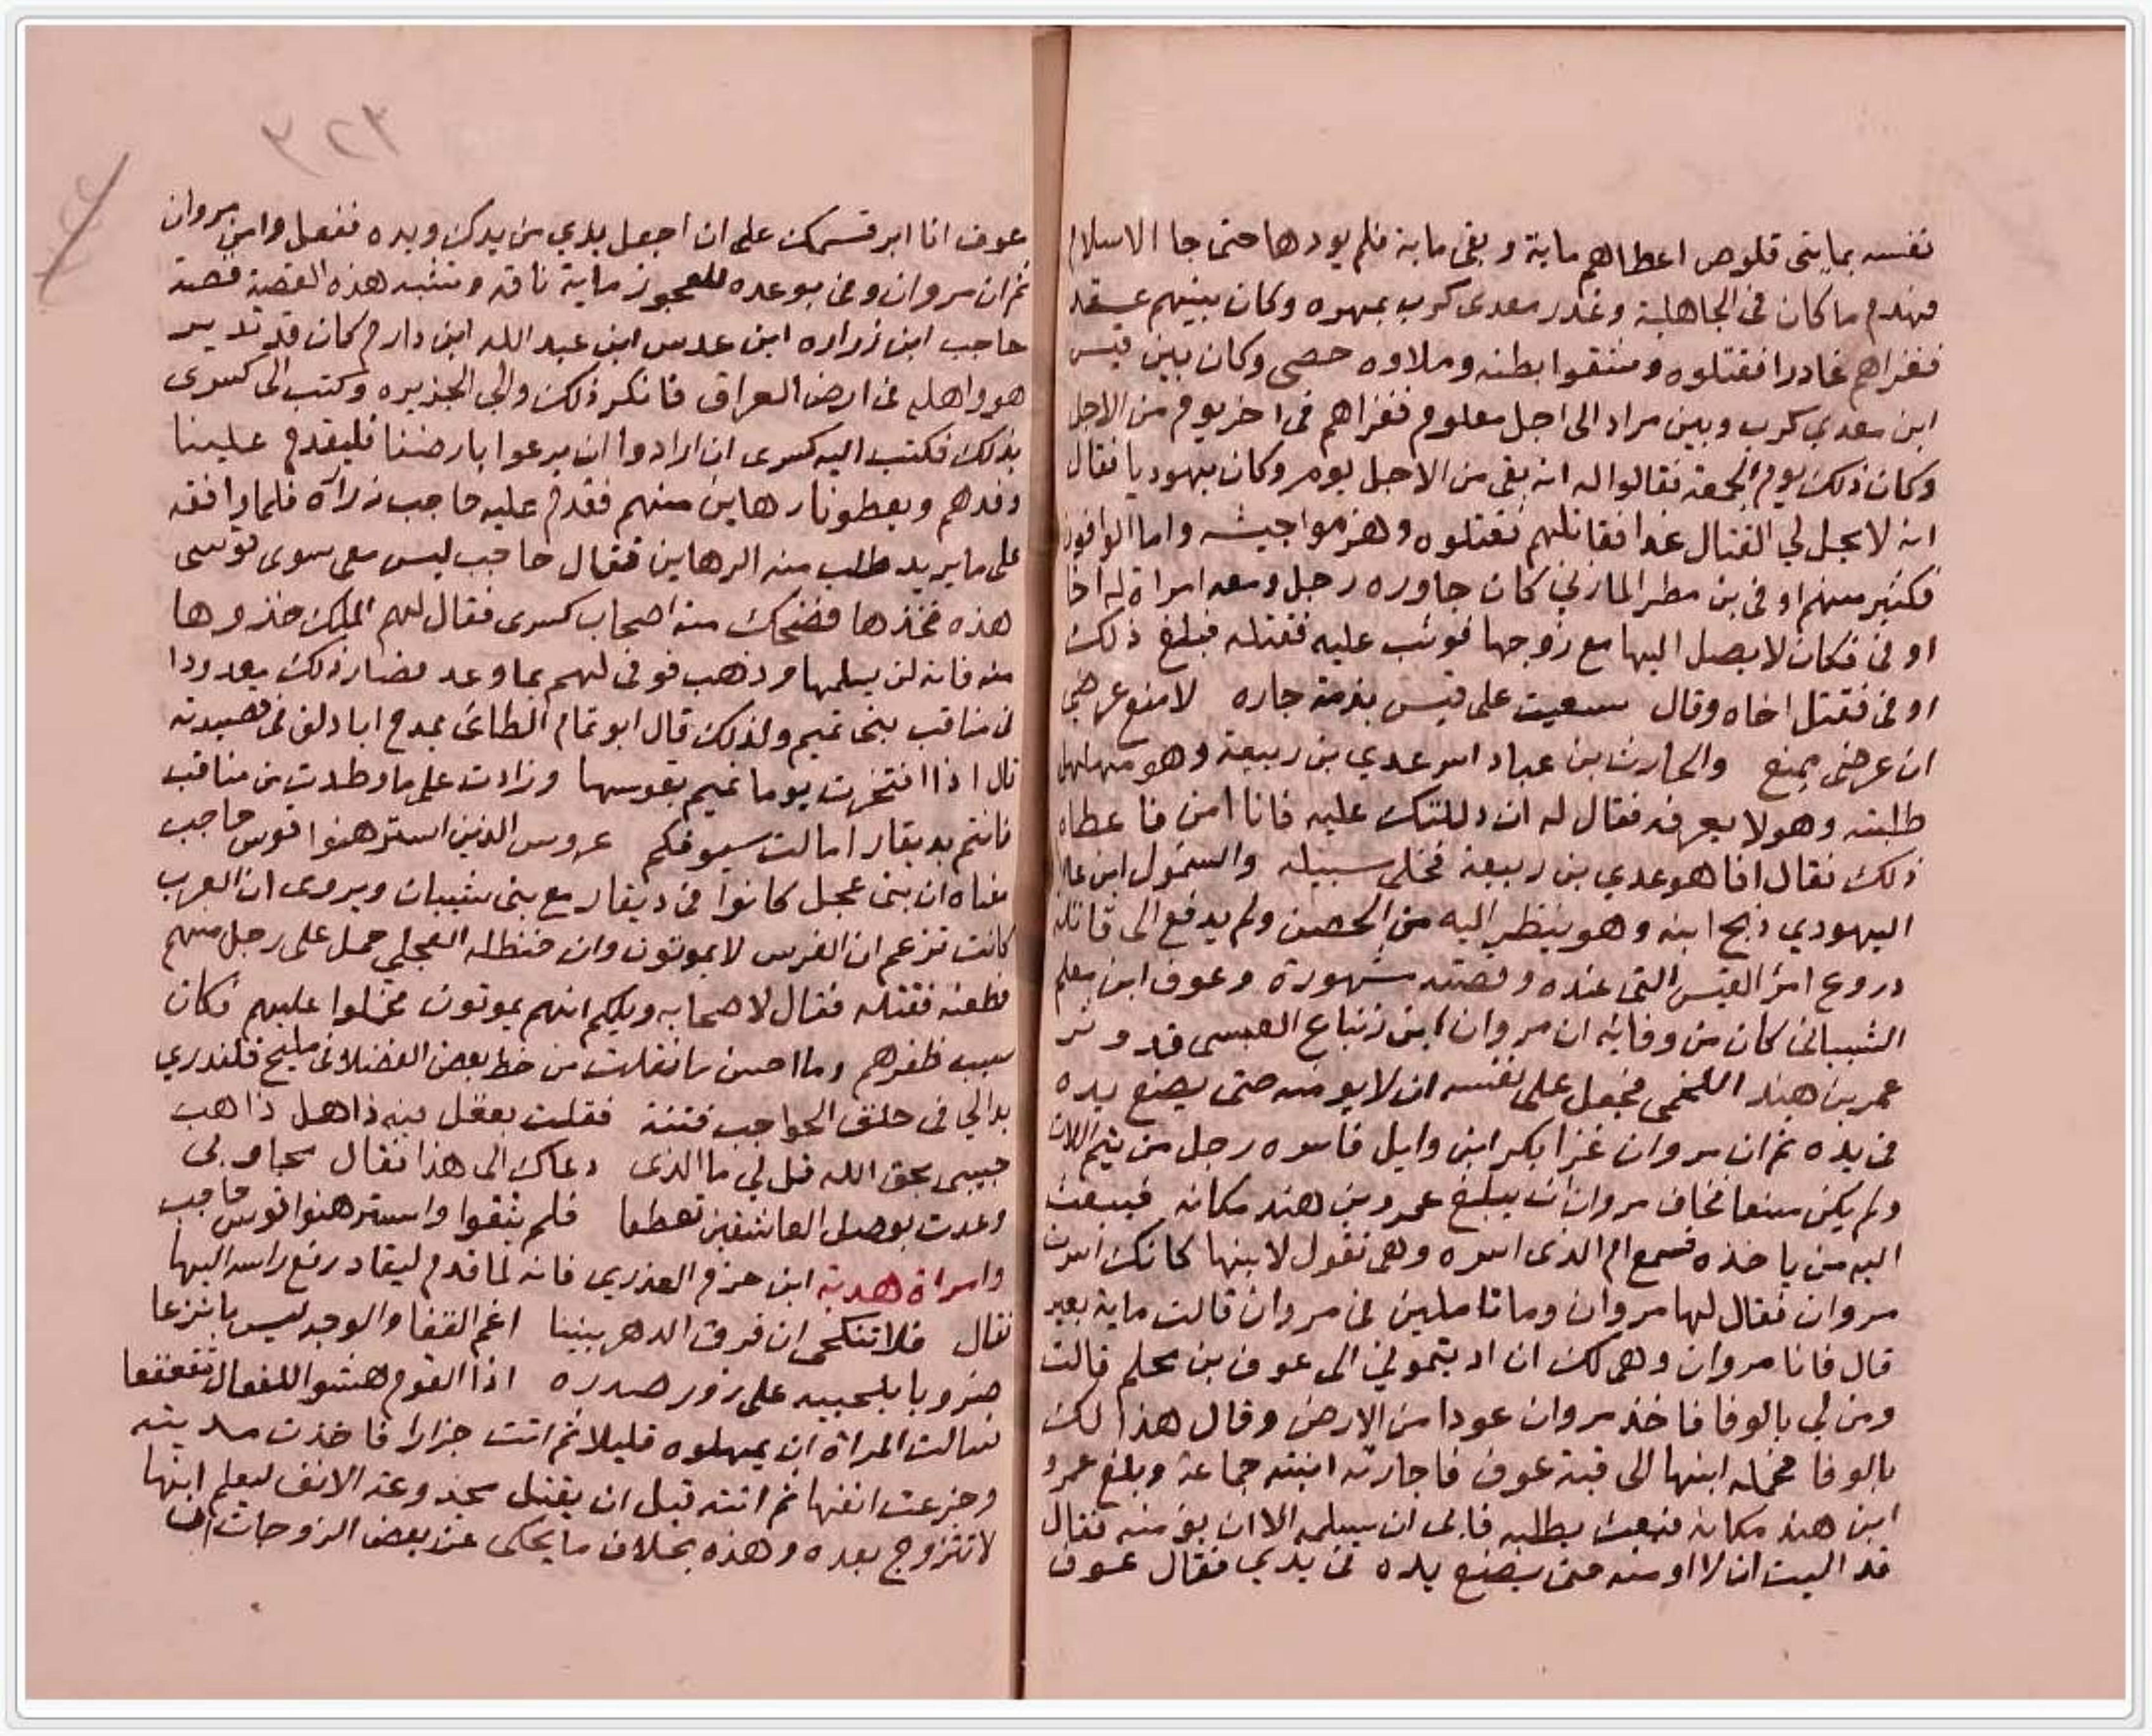 نفسه بمايتى قلوص اعطاهم ماية وبقى ماية فلم يودها حتى جا الاسلام
فهدم ما كان فى الجاهلية وغدر معدى كرب بمهره وكان بينهم عقد
فغزاهم غادرا فقتلوه وشقوا بطنه وملاوه حصى وكان بين قيس
ابن معدي كرب وبين مراد الى اجل معلوم فغزاهم فى اخر يوم من الاجل
وكان ذلك يوم الجمعة فقالوا له انه بقى من الاجل يوم وكان يهوديا فقال
انه لا يحل لي القتال غدا فقاتلهم فقتلوه وهزموا جيشه واما الوافون
فكثير منهم اوفى بن مطر المازني كان جاوره رجل ومعه امراة له اخا
اوفى فكان لا يصل اليها مع زوجها فوثب عليه فقتله فبلغ ذلك
اوفى فقتل اخاه وقال سعيت على قيس بذمة جاره لامنع عرضي
ان عرضى يمنع والحارث بن عباد اسر عدي بن ربيعة وهو مهلهل
طلبته وهو لا يعرفه فقال له ان دللتك عليه فانا امن فاعطاه
ذلك فقال انا هو عدي بن ربيعة فخلى سبيله والسمول ابن عاد
اليهودي ذبح ابنه وهو ينظر اليه من الحصن ولم يدفع الى قاتله
دروع امرؤ القيس التى عنده وقصته مشهورة وعوف ابن معلم
الشيبانى كان من وفايه ان مروان ابن زنباع العبسى قد وتر
عمر بن هند اللخمى فجعل على نفسه ان لا يومنه حتى يضع يده
فى يده ثم ان مروان غزا بكر ابن وايل فاسره رجل من يتم اللات
ولم يكن سنعا فخاف مروان ان يبلغ عمرو بن هند مكانه فيبعث
اليه من ياخذه فسمع ام الذى اسره وهى تقول لابنها كانك اسرت
مروان فقال لها مروان وما تاملين فى مروان قالت ماية بعير
قال فانا مروان وهى لك ان اديتمونى الى عوف بن محلم قالت
ومن لي بالوفا فاخذ مروان عودا من الارض وقال هذا لك
بالوفا فحمله ابنها الى قبة عوف فاجارته ابنته جماعة وبلغ عمرو
ابن هند مكانه فبعث يطلبه فابى ان يسلمه الا ان يؤمنه فقال
قد اليت ان لا اومنه حتى يضع يده فى يدي فقال عوف
٣٢٣
عوف انا ابر قسمك على ان اجعل يدي من يدك ويده ففعل وامن مروان
ثم ان مروان وفى بوعده للعجوز ماية ناقه وتشبه هذه القصة قصة
حاجب ابن زراره ابن عدس ابن عبد الله ابن دارم كان قد تدير
هو واهله فى ارض العراق فانكر ذلك والي الجزيره وكتب الى كسرى
بذلك فكتب اليه كسرى ان ارادوا ان يرعوا بارضنا فليقدم علينا
وفدهم ويعطونا رهاين منهم فقدم عليه حاجب زرارة فلما وافقه
على ما يريد طلب منه الرهاين فقال حاجب ليس معى سوى قوسى
هذه فخذها فضحك منه اصحاب كسرى فقال لهم الملك خذوها
منه فانه لن يسلمها وذهب فوفى لهم بما وعد فصار ذلك معدودا
فى مناقب بنى تميم ولذلك قال ابو تمام الطاءى يمدح ابا دلف فى قصيدته
قال اذا افتخرت يوما تميم بقوسها وزادت على ما وطدت من مناقب
فانتم بديقار امالت سيوفكم عروس الذين استرهنوا قوس حاجب
معناه ان بنى عجل كانوا فى ديقار مع بنى شيبان ويروى ان العرب
كانت تزعم ان الفرس لا يموتون وان حنظله العجلي حمل على رجل منهم
فطعنه فقتله فقال لاصحابه ويلكم انهم يموتون فحملوا عليهم فكان
سبب ظفرهم وما احسن ما نقلت من خط بعض الفضلا فى مليح قلندري
بدا لي فى حلق الحواجب فتنة فقلت بعقل منه ذاهل ذاهب
حبيبى بحق الله قل لي ما الذى دعاك الى هذا فقال مجاوبى
وعدت بوصل العاشقين تعطفا فلم يثقوا واسترهنوا قوس حاجب
وامراة هدبة ابن حزم العذري فانه لما قدم ليقاد رفع راسه اليها
فقال فلا تنكحى ان فرق الدهر بيننا اغم القفا والوجه ليس بانزعا
ضروبا بلحييه على زور صدره اذا القوم هشوا للفعال تقعقعا
فسالت المراة ان يمهلوه قليلا ثم اتت جزارا فاخذت مديته
وجزعت انفها ثم اتته قبل ان يقتل مجذوعة الانف ليعلم انها
لا تتزوج بعده وهذه بخلاف ما يحكى عن بعض الزوجات